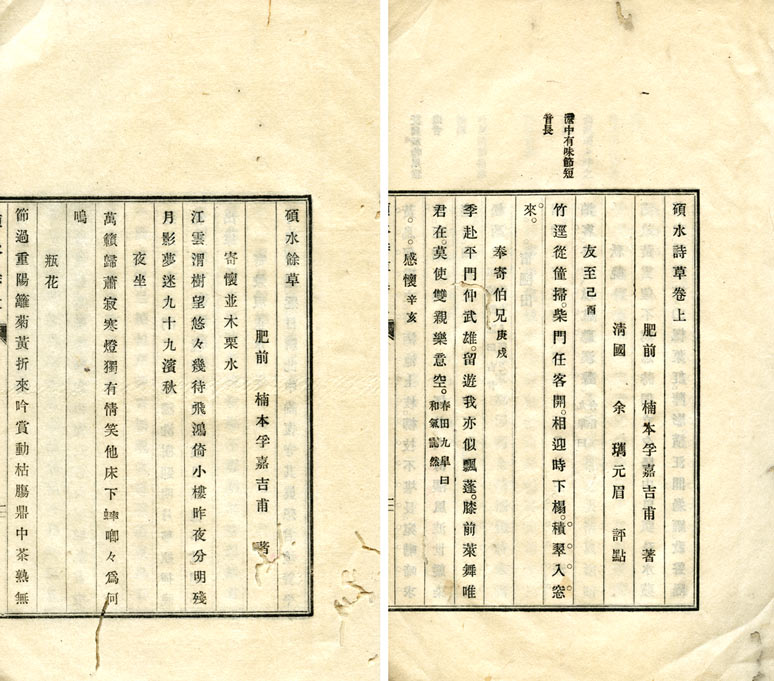 碩水詩草卷上
肥前 楠本孚嘉吉甫 著
淸國 余 瓗元眉 評點
友至己酉
竹逕從僮掃。柴門任客開。相迎時下榻。積翠入窓
來。
奉寄伯兄庚戌
季赴平門仲武雄。留遊我亦似飄蓬。膝前萊舞唯
君在。莫使雙親樂意空。春田九皐曰和氣藹然
感懷辛亥
中有味節短
首長
碩水餘草
肥前 楠本孚嘉吉甫 著
寄懷並木栗水
江雲渭樹望悠々幾待飛鴻倚小樓昨夜分明殘
月影夢迷九十九濱秋
夜坐
萬籟歸蕭寂寒燈獨有情笑他床下蟀喞々爲何
鳴
瓶花
節過重陽籬菊黃折來吟賞動枯膓鼎中茶熟無